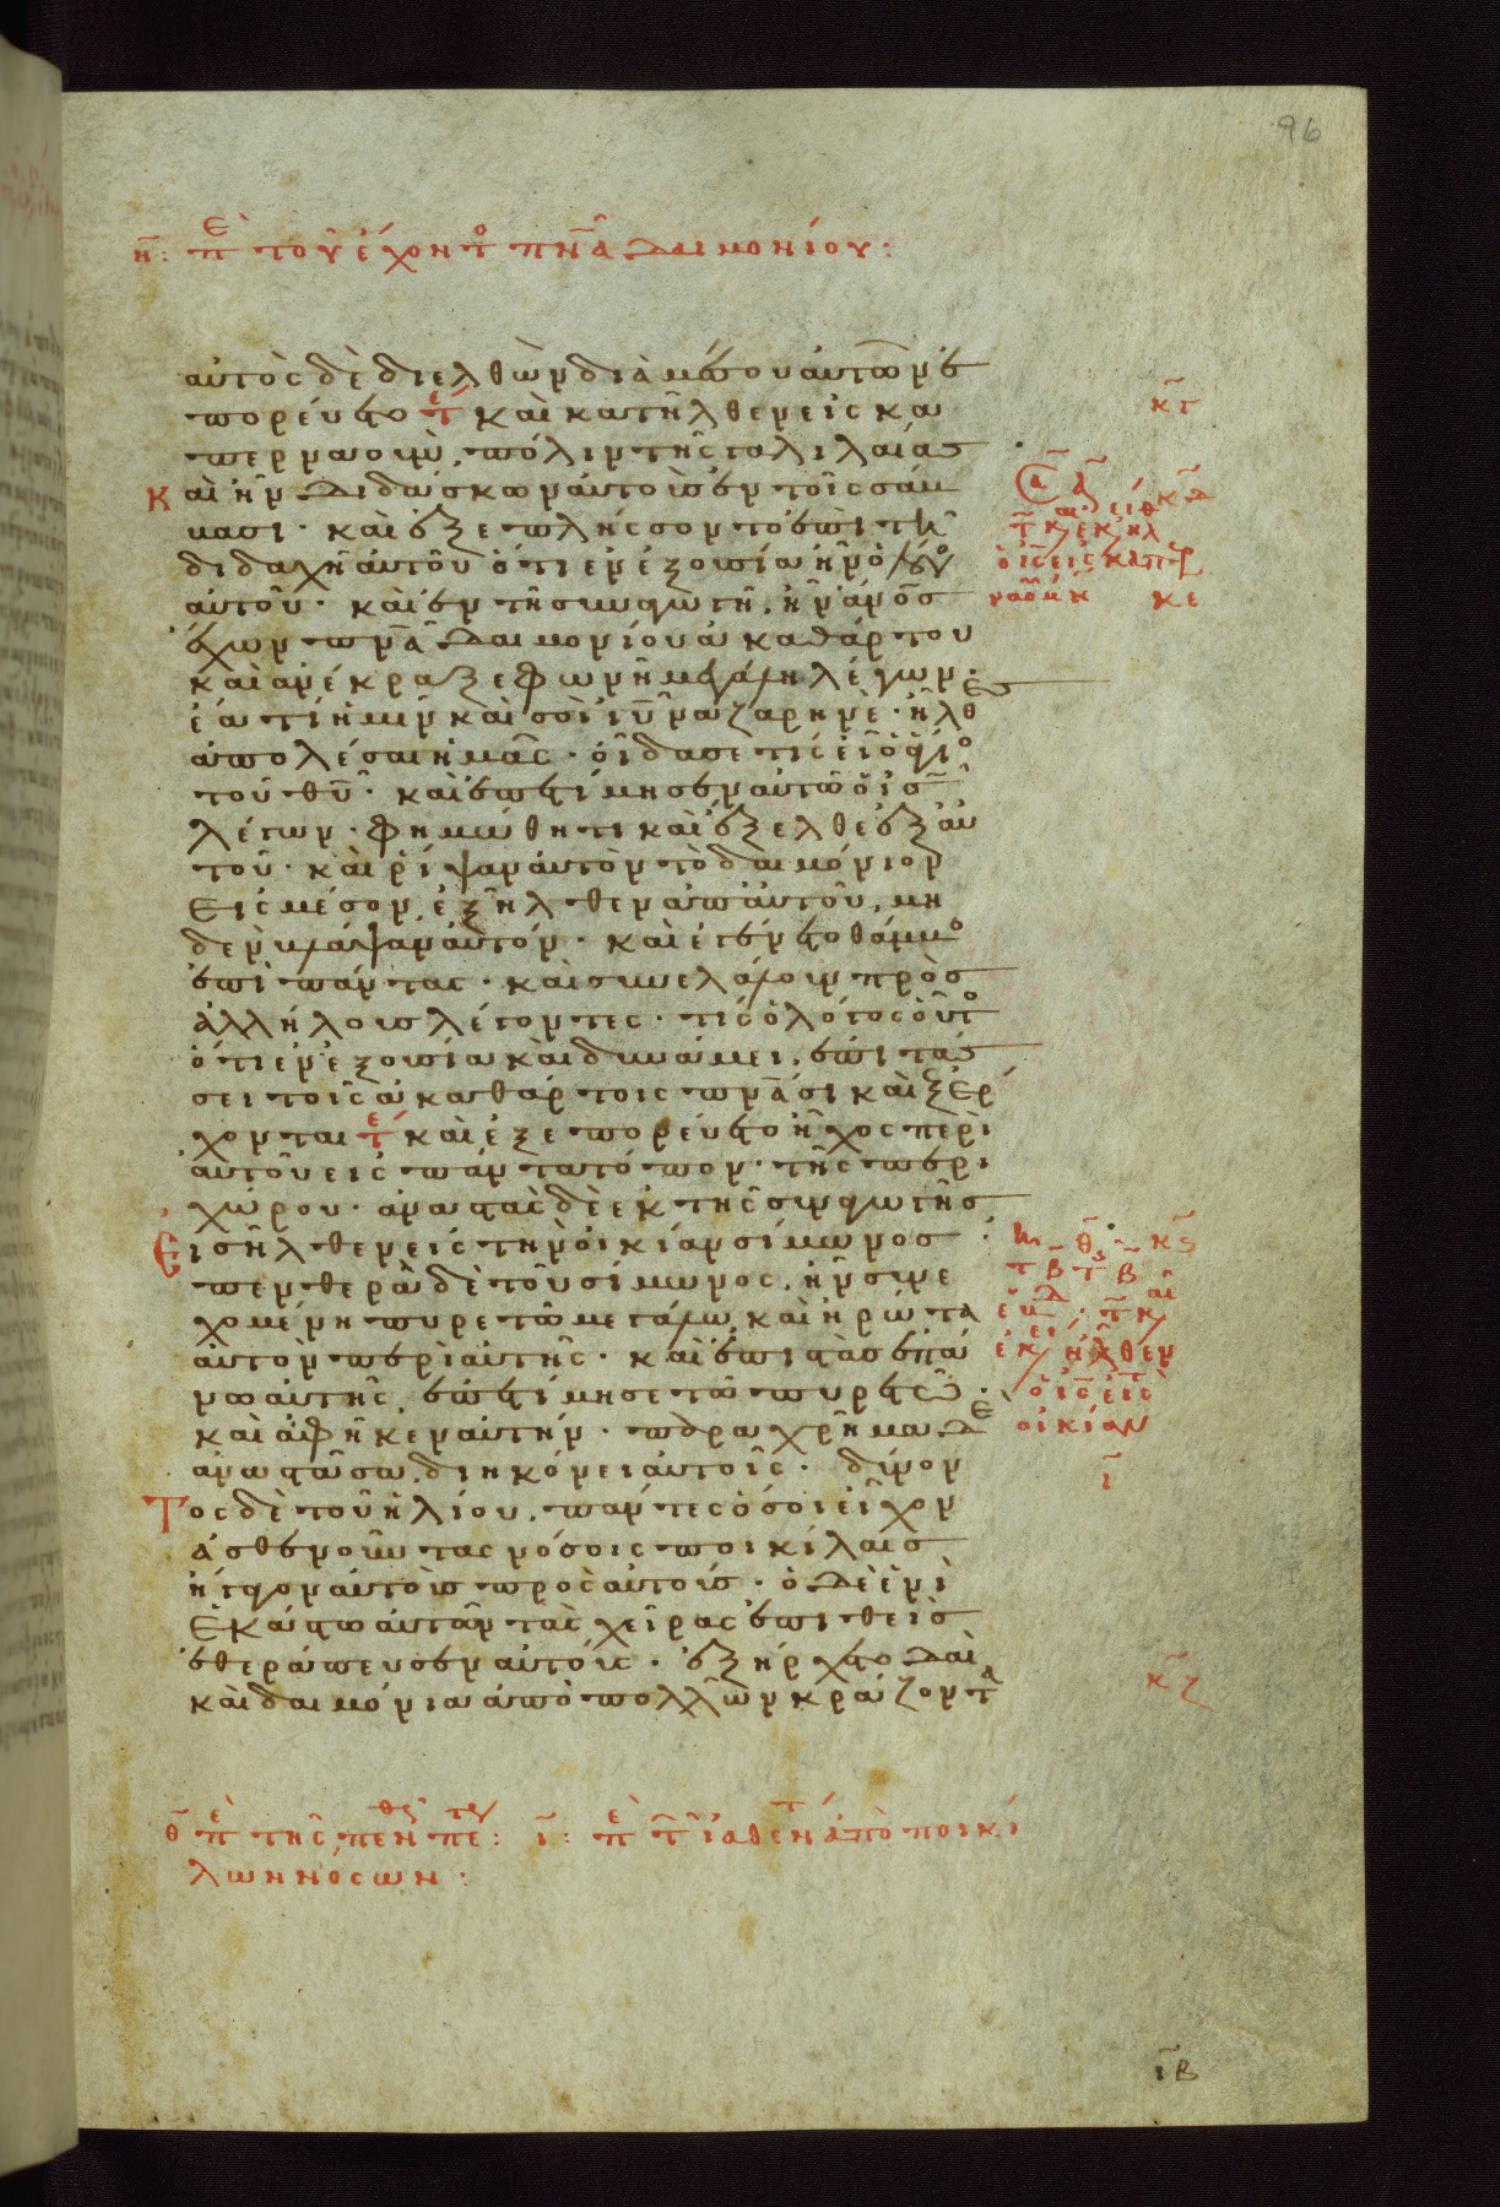 96
η̄: επὶ τοῦ ἔχοντο πν̄α δαιμονίου:
αὐτὸς δὲ διελθὼν διὰ μέσου αὐτῶν ἐ
πορεύετο τέ καὶ κατῆλθεν εἰς κα
περναοὺμ, πόλιν τῆς γαλιλαίασ
κγ̄
Καὶ ἦν διδάσκων αὐτοὺς ἐν τοῖς σάμ
κδ̄
μασι· καὶ ἐξεπλήσσοντο ἐπὶ τῆ
διδαχῆ αὐτοῦ ὅτι ἐν ἐξουσία ἦν ὁ λόγο
ὁ ις̄ εἰς καπερ
αὐτοῦ· καὶ ἐν τῆ συναγωγῆ, ἦν ἄνο̄σ
ναοὺμ κε
ἔχων πν̄α δαιμονίου ἀκαθάρτου
καὶ ἀνέκραξε φωνῆ μεγάλη λέγων·
ἔα τί ἡμῖν καὶ σοὶ ιῡ ναζαρηνέ· ἦλθες
ἀπολέσαι ἡμᾶς· οἶδα σε τίς εἶ ὁ ἅγιο
τοῦ θῡ· καὶ ἐπετίμησεν αὐτῶ ὁ ισ̄
λέγων· φημώθητι καὶ ἔξελθε ἐξ αὐ
τοῦ· καὶ ῥίψαν αὐτὸν τὸ δαιμόνιον
εἰς μέσον, ἐξῆλθεν ἀπ' αὐτοῦ, μη
δὲν βλάψαν αὐτόν· καὶ ἐγένετο θάμβο
ἐπὶ πάντας· καὶ συνελάλουν πρὸσ
ἀλλήλους λέγοντες· τίς ὁ λόγος οὗτο
ὅτι ἐν ἐξουσία καὶ δυνάμει, ἐπιτάσ
σει τοῖς ἀκαθάρτοις πν̄ασι καὶ ἐξέρ
χονται τέ καὶ ἐξεπορεύετο ἦχος περὶ
αὐτοῦ εἰς πάντα τόπον· τῆς περι
χώρου· ἀναστὰς δὲ ἐκ τῆς συναγωγῆσ
Εἰσῆλθεν εἰς τὴν οἰκίαν σίμωνοσ
θ̄ κς̄
πενθερὰ δὲ τοῦ σίμωνος, ἦν συνε
χομένη πυρετῶ μεγάλω, καὶ ἠρώτα
αὐτὸν περὶ αὐτῆς· καὶ ἐπιστὰσ ἐπά
ἦλθεν
νω αὐτῆς, ἐπετίμησε τῶ πυρετῶ·
ὁ ις̄ εἰς τὴ
καὶ ἀφῆκεν αὐτήν· παραχρῆμα δὲ
οἰκίαν
ἀναστᾶσα, διηκόνει αὐτοῖς· δύνον
ῑ
Τος δὲ τοῦ ἡλίου, πάντες ὅσοι εἶχον
ἀσθενοῦντας νόσοις ποικίλαισ
ἤγαγον αὐτοὺς πρὸς αὐτούς· ὁ δὲ ἑνὶ
ἑκάστω αὐτῶν τὰς χεῖρας ἐπιθεὶσ
ἐθεράπευσεν αὐτούς· ἐξήρχετο δὲ
κζ̄
καὶ δαιμόνια ἀπὸ πολλῶν κράζοντα
θ̄ επὶ τῆς πενθερᾶς πέτρου: ῑ: επὶ τῶν ἰαθέντων ἀπὸ ποικί
λων νόσων:
ιβ̄